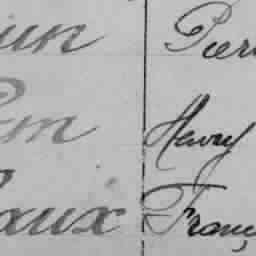 un Pier
Pem Henry
aux Franç